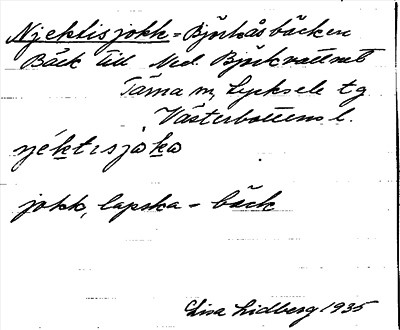 Njektisjokk = Björkåsbäcken
Bäck till Ned. Björkvattnet
Tärna sn, Lycksele tg
Västerbottens l.
njéktisjoko
jokk, lapska = bäck
Lisa Lidberg 1935